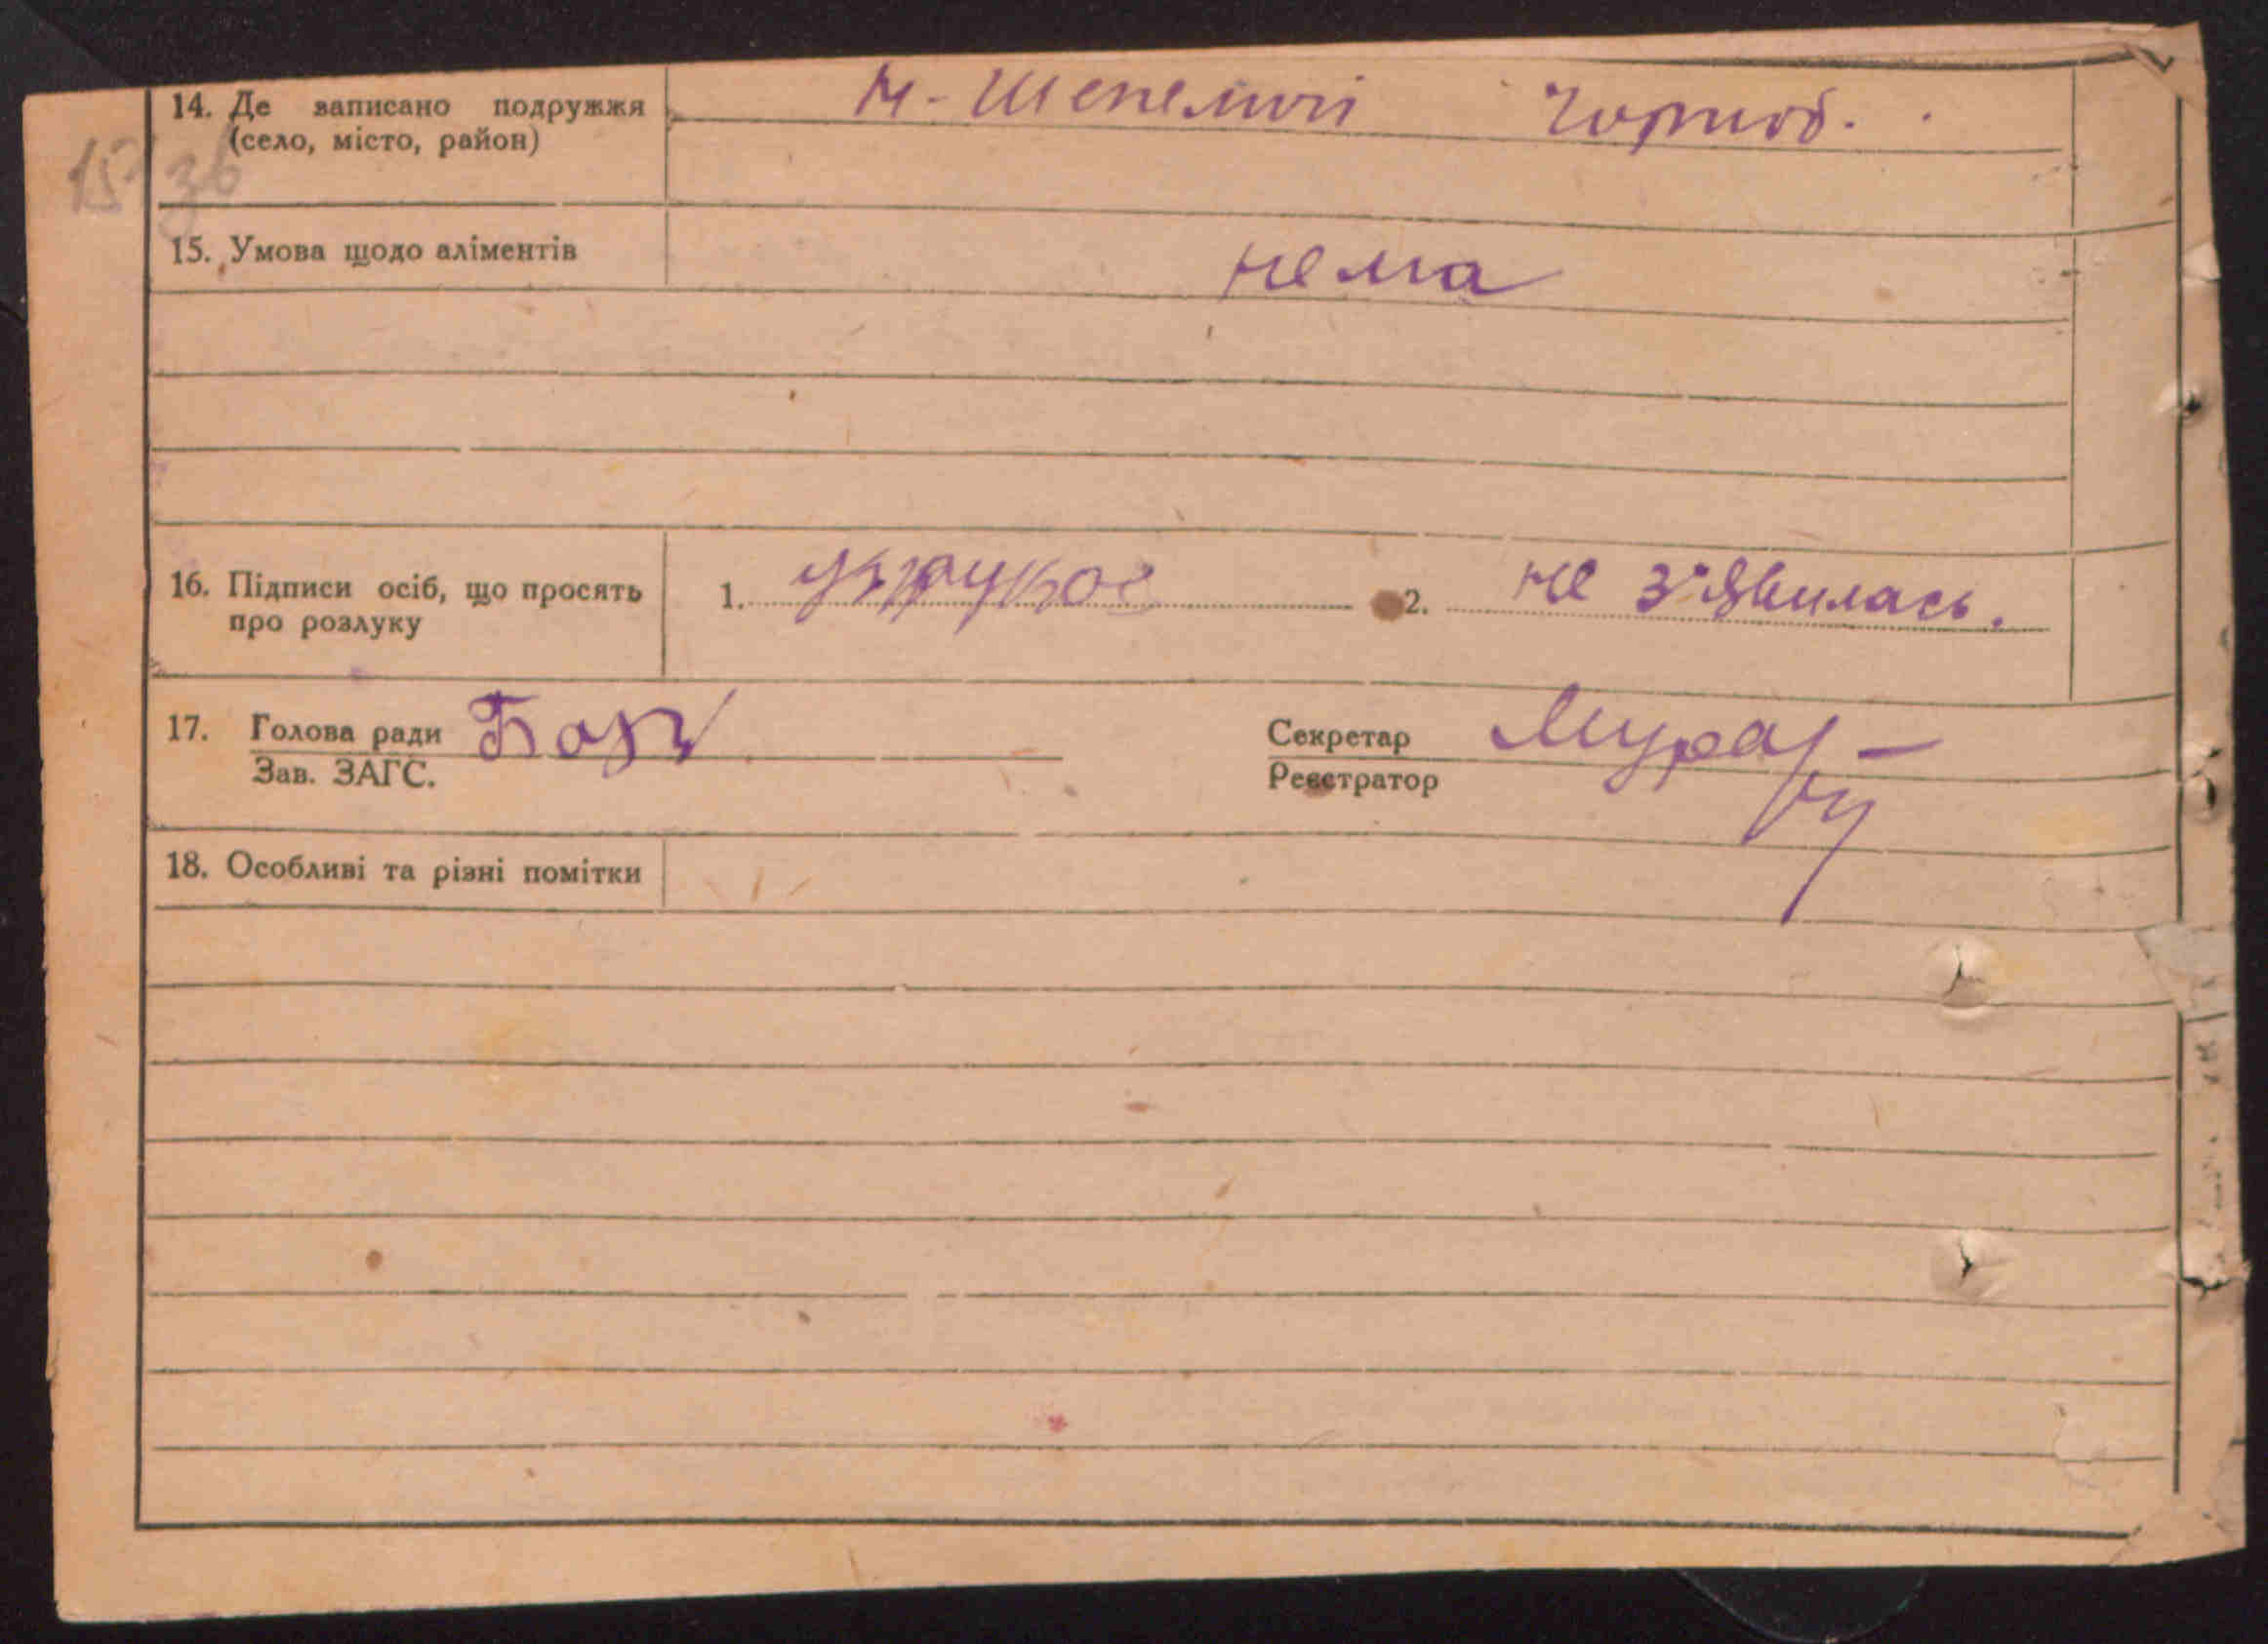 14. Де записано подружжя Н-Шепеличі Чорноб.
(село, місто, район)
15 зв
15. Умова щодо аліментів нема
16. Підписи осіб, що просять 1. 2. не з'явилась.
про розлуку
17. Голова ради Секретар
Зав. ЗАГС. Реєстратор
18. Особливі та різні помітки